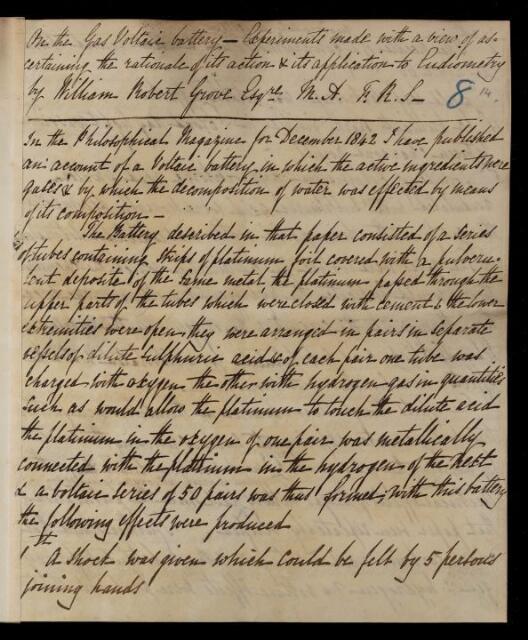 On the Gas Voltaic battery — Experiments made with a view of as-
certaining the rationale of its action & its application to Eudiometry
by William Robert Grove Esqre M. A. F. R. S — 8
In the Philosophical Magazine for December 1842 I have published
an account of a Voltaic battery in which the active ingredients were
gases & by which the decomposition of water was effected by means
of its composition —
The Battery described in that paper consisted of a series
of tubes containing strips of platinum foil covered with a pulveru-
lent deposite of the same metal, the platinum passed through the
upper parts of the tubes which were closed with cement & the lower
extremities were open, they were arranged in pairs in separate
vessels of dilute Sulphuric acid & of each pair one tube was
charged with oxygen the other with hydrogen gas in quantities
such as would allow the platinum to touch the dilute acid
the platinum in the oxygen of one pair was metallically
connected with the platinum in the hydrogen of the next
& a voltaic series of 50 pairs was thus formed, with this battery
the following effects were produced
1th A shock was given which could be felt by 5 persons
joining hands